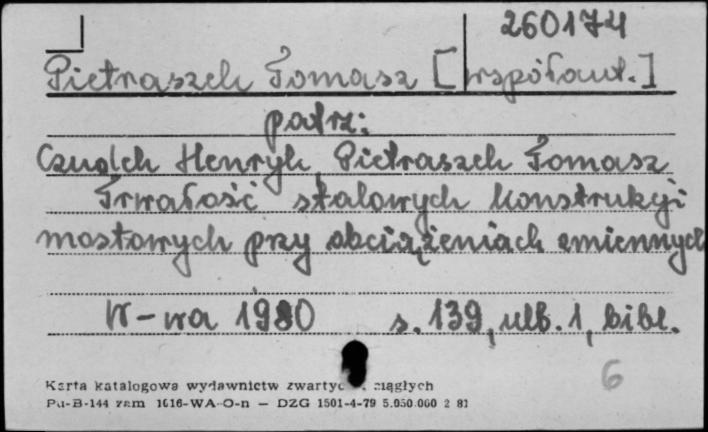 260174
Pietraszek Tomasz [współaut.]
patrz:
Czudek Henryk, Pietraszek Tomasz
Trwałość stalowych konstrukcji
mostowych przy obciążeniach zmiennych
W-wa 1980 s. 139, ulb. 1, bibl.
6
Karta katalogowa wydawnictw zwartych ciągłych
Pu-B-144 zam 1616-WA-O-n — DZG 1501-4-79 5.050.000 2 81